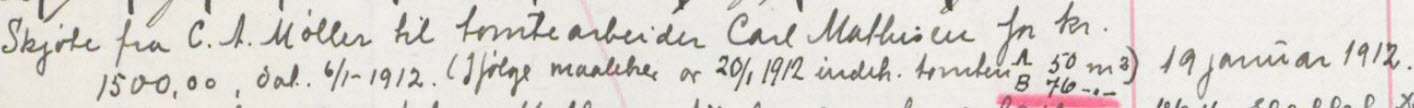 Skjøte fra C. A. Møller til tomtearbeider Carl Mathisen for kr.
1500,00, dat. 6/1-1912. (Ifølge maalebr. av 20/1 1912 indeh. tomten A 50 m²) 19 januar 1912.
B 76 -„-